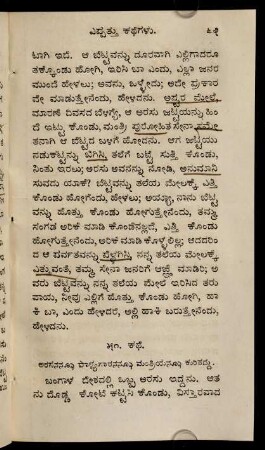 ಎಪ್ಪತ್ತು ಕಥೆಗಳು.
ಟಾಗಿ ಇದೆ. ಆ ಬೆಟ್ಟವನ್ನು ದೂರವಾಗಿ ಎಲ್ಲಿಗಾದರೂ
ತಕ್ಕೊಂಡು ಹೋಗಿ, ಇರಿಸಿ ಬಾ ಎಂದು, ಎಲ್ಲಾ ಜನರ
ಮುಂದೆ ಹೇಳಲು; ಅವನು, ಒಳ್ಳೇದು; ಅದೇ ಪ್ರಕಾರ
ವೇ ಮಾಡುತ್ತೇನೆಂದು, ಹೇಳಿದನು. ಅಪ್ಪರ ಮೇಲೆ,
ಮಾರಣೆ ದಿವಸದ ಬೆಳಗ್ಗೆ, ಆ ಅರಸು ಜಟ್ಟಿಯನ್ನು ಹಿಂ
ದೆ ಇಟ್ಟು ಕೊಂಡು, ಮಂತ್ರಿ ಪುರೋಹಿತ ಸೇನಾ ಸಮೇ
ತನಾಗಿ ಆ ಬೆಟ್ಟದ ಬಳಿಗೆ ಹೋದನು. ಆಗ ಜಟ್ಟಿಯು
ನಡುಕಟ್ಟನ್ನು ಬಿಗಿಸಿ, ತಲೆಗೆ ಬಟ್ಟೆ ಸುತ್ತಿ ಕೊಂಡು,
ನಿಂತು ಇರಲು; ಅರಸು ಅವನನ್ನು ನೋಡಿ, ಅನುಮಾನಿ
ಸುವದು ಯಾಕೆ? ಬೆಟ್ಟವನ್ನು ತಲೆಯ ಮೇಲಕ್ಕೆ, ಎತ್ತಿ
ಕೊಂಡು ಹೋಗೆಂದು, ಹೇಳಲು; ಅಯ್ಯಾ, ನಾನು ಬೆಟ್ಟ
ವನ್ನು ಹೊತ್ತು ಕೊಂಡು ಹೋಗುತ್ತೇನೆಂದು, ತಮ್ಮ
ಸಂಗಡ ಅರಿಕೆ ಮಾಡಿ ಕೊಂಡೆನಲ್ಲದೆ, ಎತ್ತಿ ಕೊಂಡು
ಹೋಗುತ್ತೇನೆಂದು, ಅರಿಕೆ ಮಾಡಿ ಕೊಳ್ಳಲಿಲ್ಲ; ಆದದರಿಂ
ದ ಆ ಪರ್ವತವನ್ನು ಪೆಳ್ಳಗಿಸಿ, ನನ್ನ ತಲೆಯ ಮೇಲಕ್ಕೆ,
ಎತ್ತುವಂತೆ, ತಮ್ಮ ಸೇನಾ ಜನರಿಗೆ ಆಜ್ಞೆ ಮಾಡಿರಿ; ಅ
ವರು ಬೆಟ್ಟವನ್ನು ನನ್ನ ತಲೆಯ ಮೇಲೆ ಇರಿಸಿದ ತರು
ವಾಯ, ನೀವು ಎಲ್ಲಿಗೆ ಹೊತ್ತು ಕೊಂಡು ಹೋಗಿ, ಹಾ
ಕಿ ಬಾ, ಎಂದು ಹೇಳಿದರೆ, ಅಲ್ಲಿ ಹಾಕಿ ಬರುತ್ತೇನೆಂದು,
ಹೇಳಿದನು.
೫೧. ಕಥೆ.
ಬಂಗಾಳ ದೇಶದಲ್ಲಿ ಒಬ್ಬ ಅರಸು ಇದ್ದನು. ಆತ
ನು ದೊಡ್ಡ ಕೋಟೆ ಕಟ್ಟಿಸಿ ಕೊಂಡು, ವಿಸ್ತಾರವಾದ